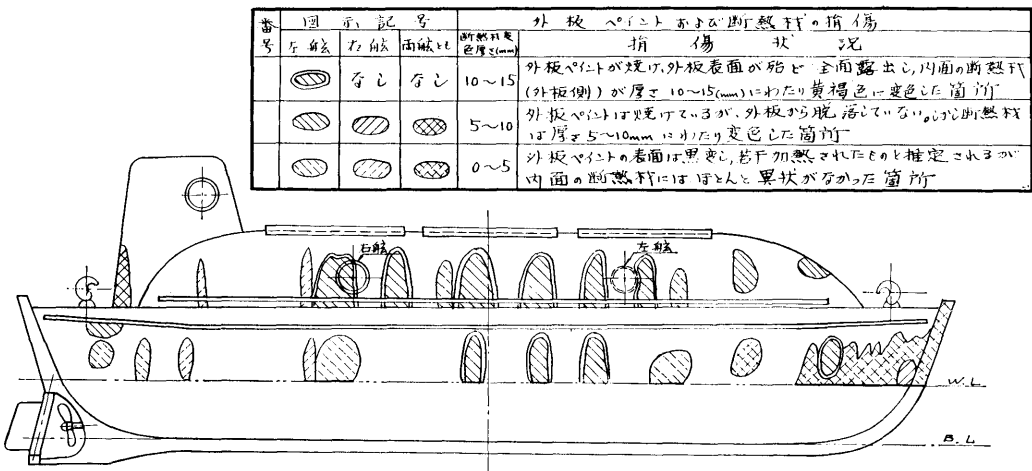 番号 図示記号 外板ペイントおよび断熱材の損傷
左舷 右舷 両舷とも 断熱材変色厚さ(mm) 損傷状況
なし なし 10～15 外板ペイントが焼け、外板表面が殆ど全面露出し、内面の断熱材
(外板側)が厚さ10～15(mm)にわたり黄褐色に変色した箇所
5～10 外板ペイントは焼けているが、外板から脱落していない。しかし断熱材
は厚さ5～10mmにわたり変色した箇所
0～5 外板ペイントの表面は黒変し、若干加熱されたものと推定されるが
内面の断熱材にはほとんど異状がなかった箇所
右舷
左舷
W.L
B.L